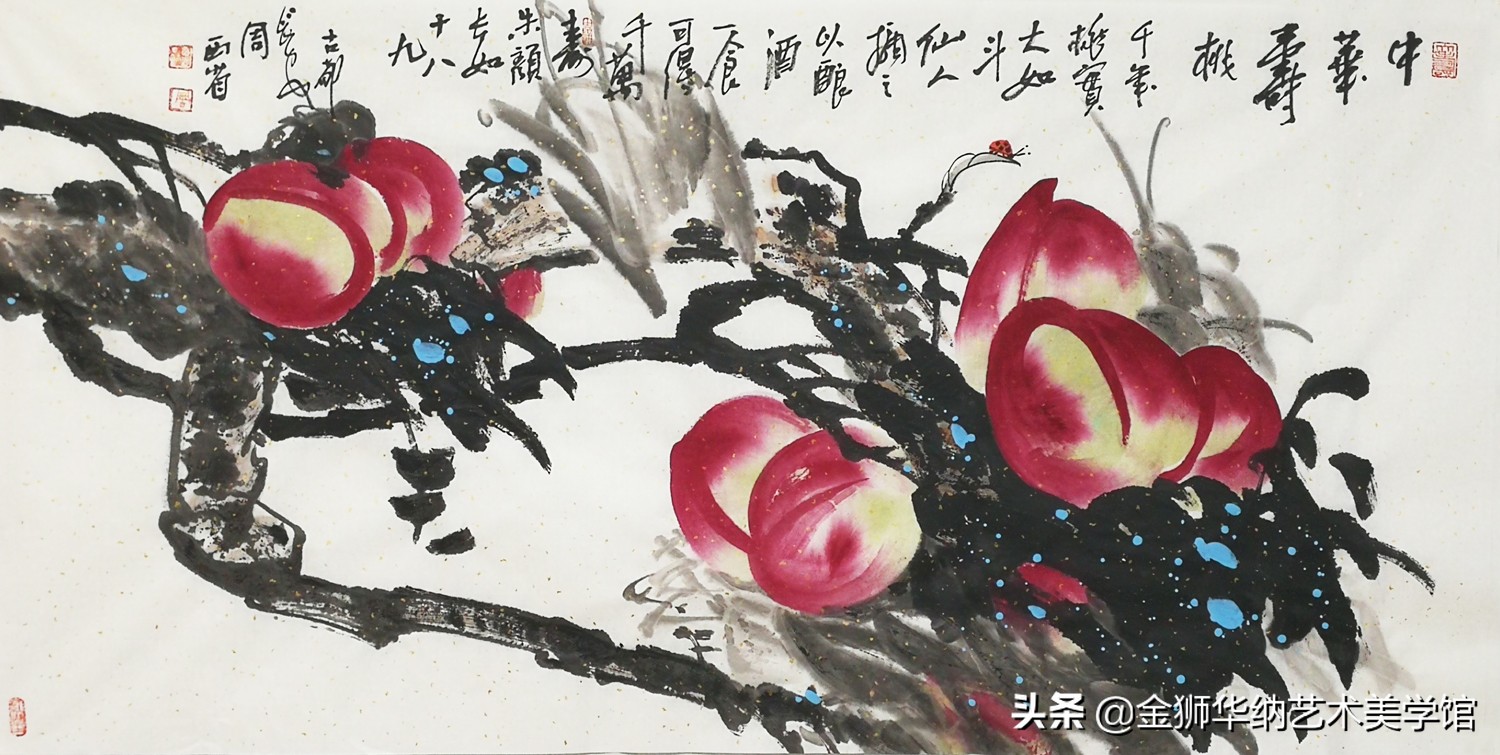 中
華
壽
桃
千年
桃實
大如
斗
仙人
摘之
以酿
酒
一食
可得
千萬
壽
朱顔
长如
十八
九
古都
長安
周
西省
头条 @金狮华纳艺术美学馆